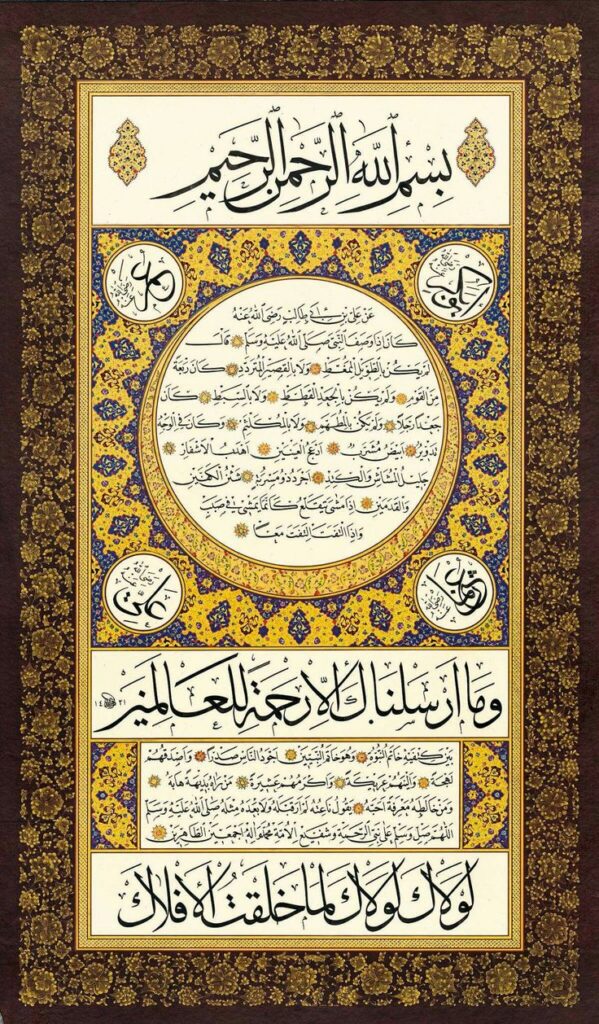 بِسْمِ اللهِ الرَّحْمٰنِ الرَّحِيمِ
ابو بكر رضي الله عنه
عمر رضي الله عنه
عن علي بن ابي طالب رضي الله عنه
كان اذا وصف النبي صلى الله عليه وسلم قال
لم يكن بالطويل الممغط ولا بالقصير المتردد كان ربعة
من القوم ولم يكن بالجعد القطط ولا بالسبط كان
جعدا رجلا ولم يكن بالمطهم ولا بالمكلثم وكان في الوجه
تدوير ابيض مشرب ادعج العينين اهدب الاشفار
جليل المشاش والكتد اجرد ذو مسربة شثن الكفين
والقدمين اذا مشى يتقلع كانما يمشي في صبب
واذا التفت التفت معا
عثمان رضي الله عنه
علي رضي الله عنه
وما ارسلناك الا رحمة للعالمين
١٤٢١
بين كتفيه خاتم النبوة وهو خاتم النبيين اجود الناس صدرا واصدقهم
لهجة والينهم عريكة واكرمهم عشيرة من رآه بديهة هابه
ومن خالطه معرفة احبه يقول ناعته لم ار قبله ولا بعده مثله صلى الله عليه وسلم
اللهم صل وسلم على نبي الرحمة وشفيع الامة محمد وآله اجمعين الطاهرين
لولاك لولاك لما خلقت الافلاك